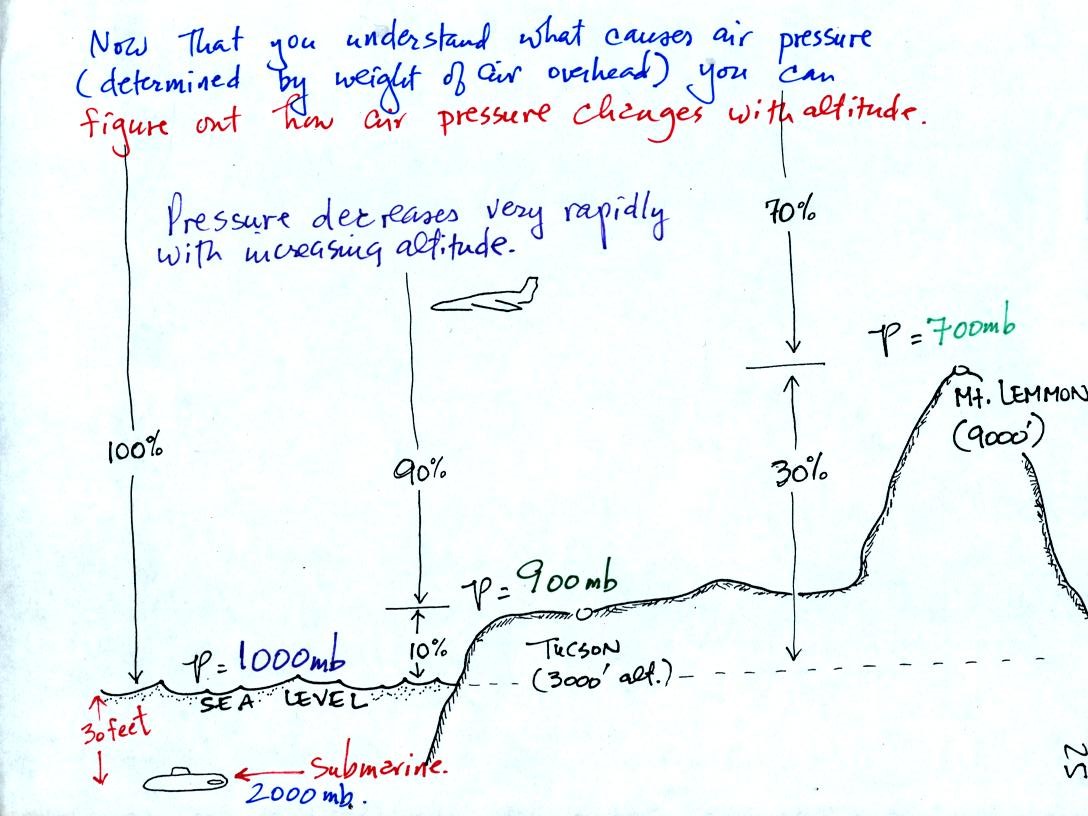 Now that you understand what causes air pressure
(determined by weight of air overhead) you can
figure out how air pressure changes with altitude.
Pressure decreases very rapidly
with increasing altitude.
70%
P = 700mb
Mt. LEMMON
(9000')
100%
90%
30%
P = 900mb
10%
TUCSON
(3000' alt.)
P = 1000mb
SEA LEVEL
30 feet
Submarine.
2000 mb.
25